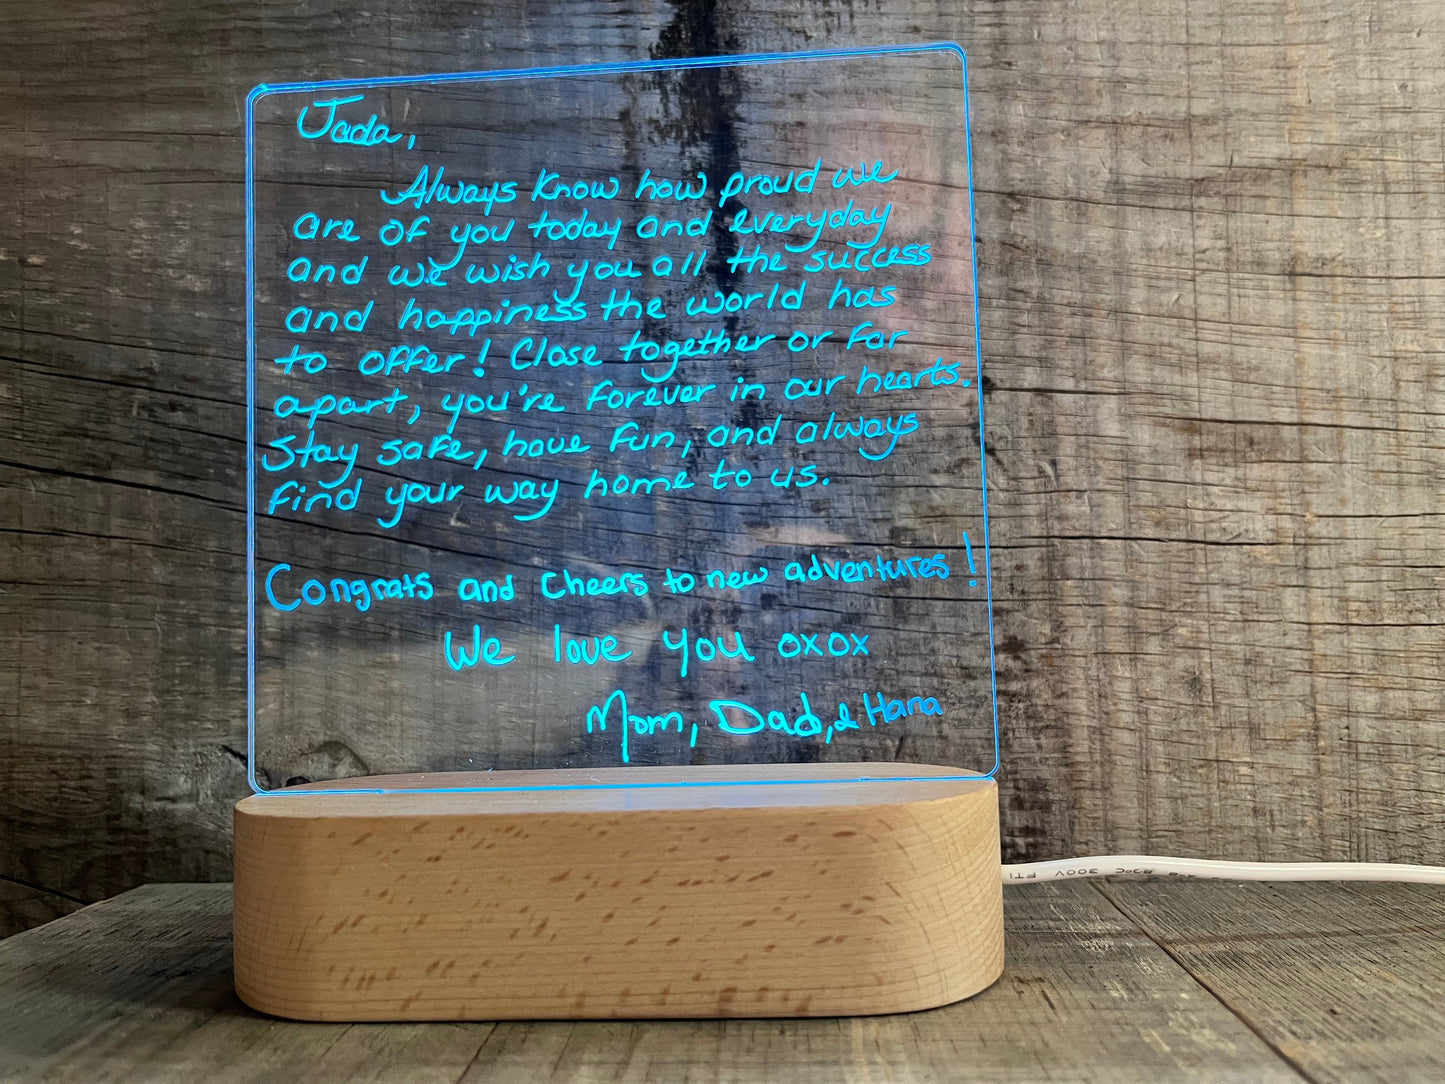 Jada,
Always know how proud we
are of you today and everyday
and we wish you all the success
and happiness the world has
to offer! Close together or far
apart, you're forever in our hearts.
Stay safe, have fun, and always
find your way home to us.
Congrats and Cheers to new adventures!
We love you oxox
Mom, Dad, & Hana
300V FT1